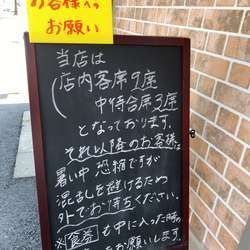 お客様への
お願い
当店は
店内客席9座
中待合席3座
となっております。
それ以降のお客様は
暑い中恐縮ですが
混乱を避けるため
外でお待ちください。
※食券も中に入った時
をお願いします。